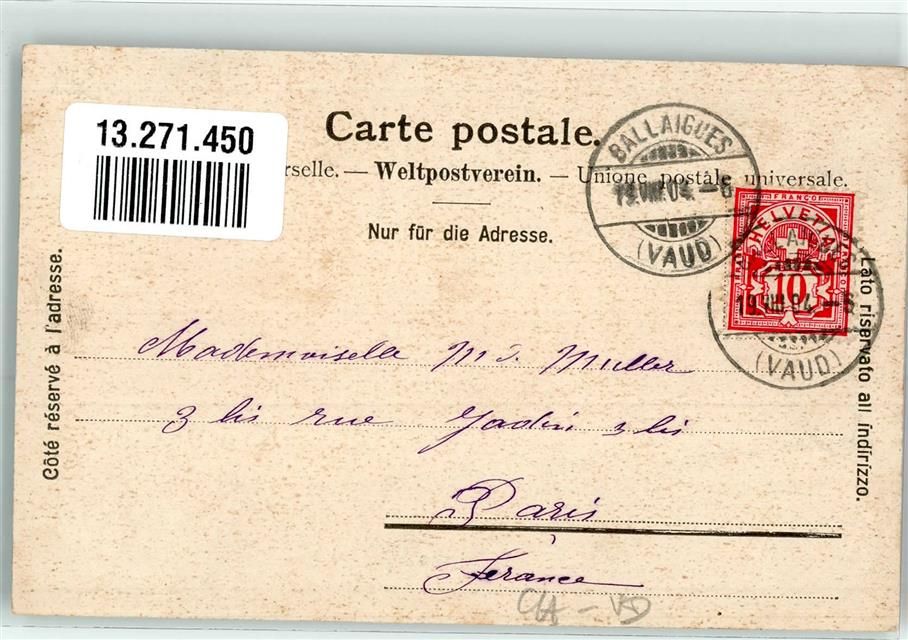 13.271.450
Carte postale.
rselle. — Weltpostverein. — Unione postale universale.
Nur für die Adresse.
Côté réservé à l'adresse.
Lato riservato all indirizzo.
BALLAIGUES
19.VIII.04. – 6
(VAUD)
FRANCO
HELVETIA
10
19.VIII.04. – 6
(VAUD)
Mademoiselle M. J. Muller
3 bis rue Jadin 3 bis
Paris
France
CH – VD